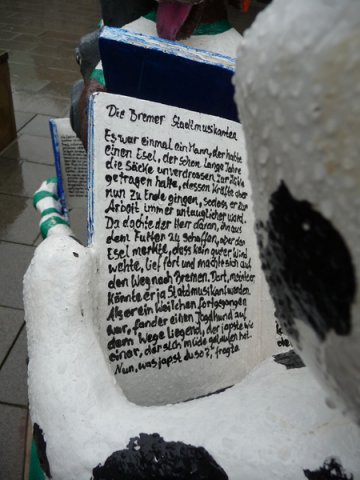 Die Bremer Stadtmusikanten
Es war einmal ein Mann, der hatte
einen Esel, der schon lange Jahre
die Säcke unverdrossen zur Mühle
getragen hatte, dessen Kräfte aber
nun zu Ende gingen, sodass er zur
Arbeit immer untauglicher ward.
Da dachte der Herr daran, ihn aus
dem Futter zu schaffen, aber der
Esel merkte, dass kein guter Wind
wehte, lief fort und machte sich auf
den Weg nach Bremen. Dort, meinte er
könnte er ja Stadtmusikant werden.
Als er ein Weilchen fortgegangen
war, fand er einen Jagdhund auf
dem Wege liegend, der japste wie
einer, der sich müde gelaufen hat.
Nun, was japst du so?", fragte